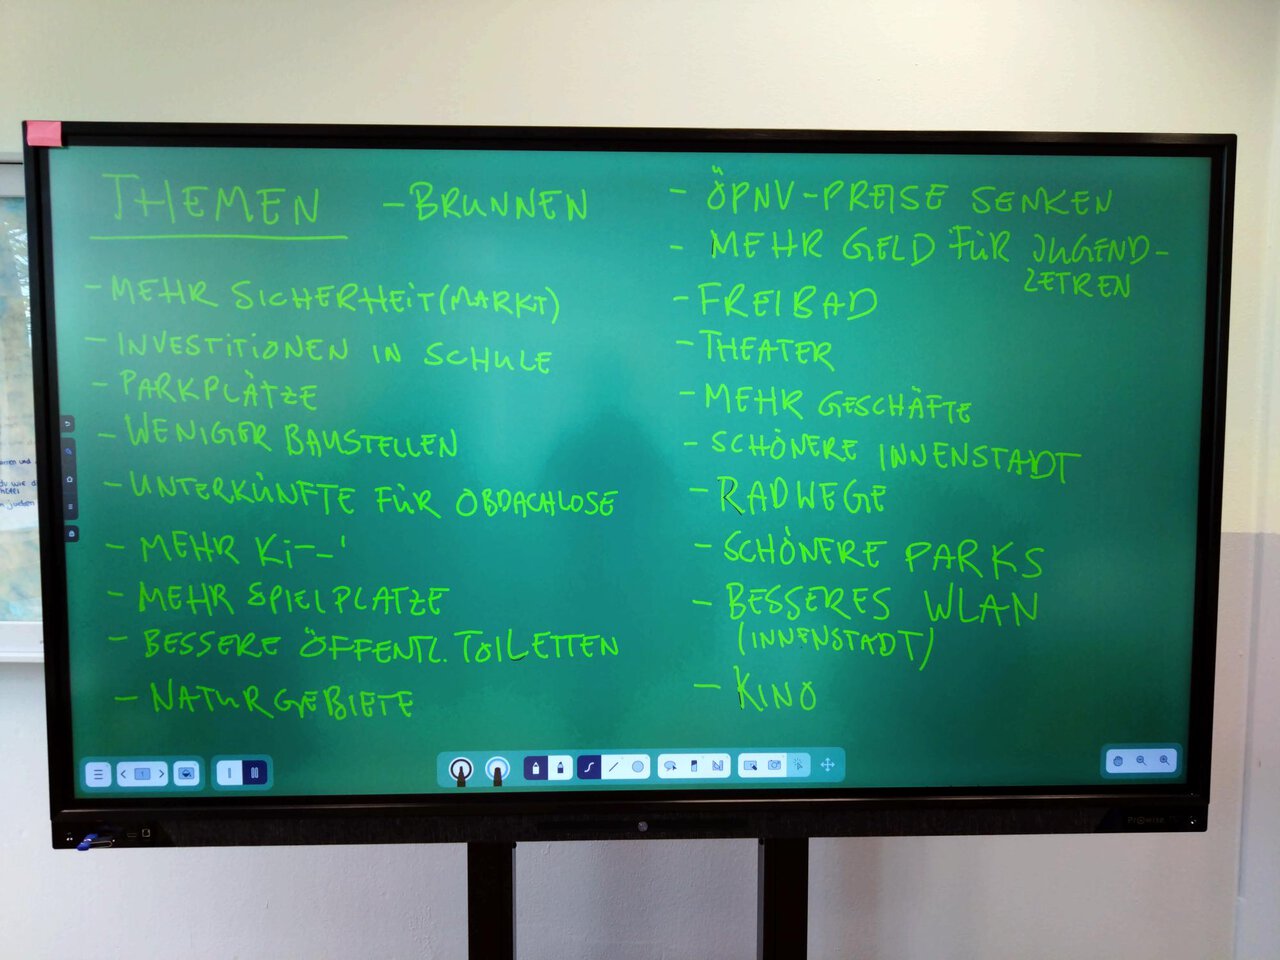 THEMEN
- BRUNNEN
- MEHR SICHERHEIT (MARKT)
- INVESTITIONEN IN SCHULE
- PARKPLÄTZE
- WENIGER BAUSTELLEN
- UNTERKÜNFTE FÜR OBDACHLOSE
- MEHR Ki
- MEHR SPIELPLATZE
- BESSERE ÖFFENTL. TOILETTEN
- NATURGEBIETE
- ÖPNV-PREISE SENKEN
- MEHR GELD FÜR JUGEND-
ZETREN
- FREIBAD
- THEATER
- MEHR GESCHÄFTE
- SCHÖNERE INNENSTADT
- RADWEGE
- SCHÖNERE PARKS
- BESSERES WLAN
(INNENSTADT)
- KINO
1
Prowise